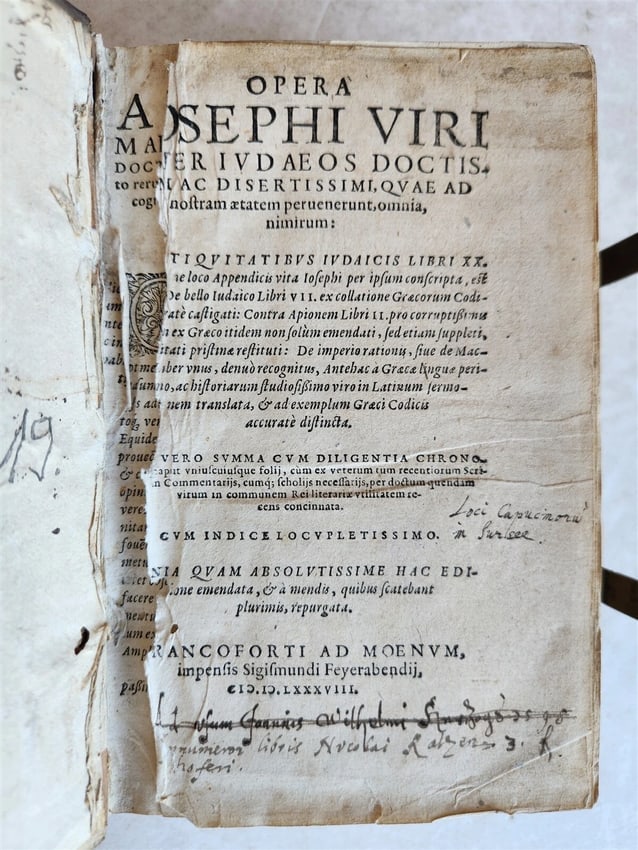 OPERA
OSEPHI VIRI
TER IVDAEOS DOCTIS-
AC DISERTISSIMI, QVAE AD
nostram ætatem peruenerunt, omnia,
nimirum:
TIQVITATIBVS IVDAICIS LIBRI XX.
loco Appendicis vita Iosephi per ipsum conscripta, est
De bello Iudaico Libri VII. ex collatione Græcorum Codi-
castigati: Contra Apionem Libri II. pro corruptißimis
ex Græco itidem non solùm emendati, sed etiam suppleti,
pristinæ restituti: De imperio rationis, siue de Mac-
vnus, denuò recognitus, Antehac à Græcæ linguæ peri-
ac historiarum studiosißimo viro in Latinum sermo-
nem translata, & ad exemplum Græci Codicis
accuratè distincta.
VERO SVMMA CVM DILIGENTIA CHRONO-
caput vniuscuiusque folij, cùm ex veterum tum recentiorum Scri-
Commentarijs, cumq; scholijs necessarijs, per doctum quendam
virum in communem Rei literariæ vtilitatem re-
cens concinnata.
Loci Capucinorū
in Surlee.
CVM INDICE LOCVPLETISSIMO.
NIA QVAM ABSOLVTISSIME HAC EDI-
emendata, & à mendis, quibus scatebant
plurimis, repurgata.
RANCOFORTI AD MOENVM,
impensis Sigismundi Feyerabendij,
CIƆ.IƆ.LXXXVIII.
usum Joannis Wilhelmi
libris Nicolai
19.
A
M A
DOC
to reru
cog
Equide
prouec
& c
opin
vere
nitan
fouē
metu
facere
um ex
Amp
paßin